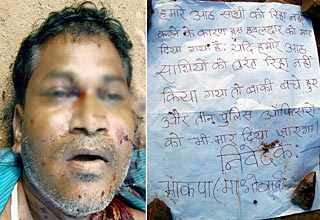 हमारे आठ साथी को रिहा नहीं
करने के कारण इस हवलदार को मार
दिया गया है। यदि हमारे आठ
साथियों को तुरंत रिहा नहीं
किया गया तो बाकी बचे हुए
और तीन पुलिस ऑफिसरों
को भी मार दिया जाएगा।
निवेदक
भाकपा (माओवादी)